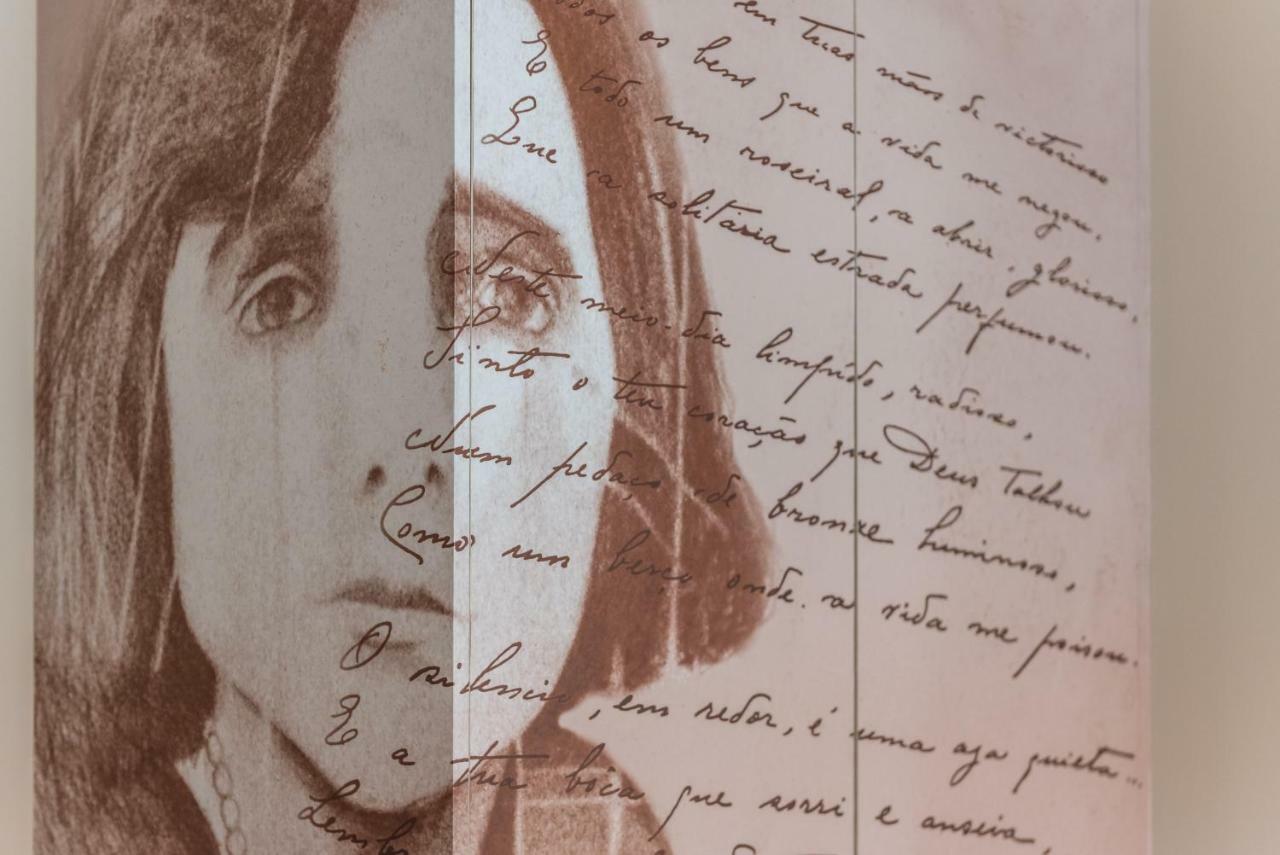 em tuas mãos de victorioso
todos os bens que a vida me negou.
E todo um roseiral, a abrir, glorioso,
Que a solitária estrada perfumou.
Neste meio-dia limpido, radioso,
Sinto o teu coração que Deus talhou
Num pedaço de bronze luminoso,
Como um berço onde a vida me poisou.
O silencio, em redor, é uma aza quieta...
E a tua bôca que sorri e anseia,
Lembr